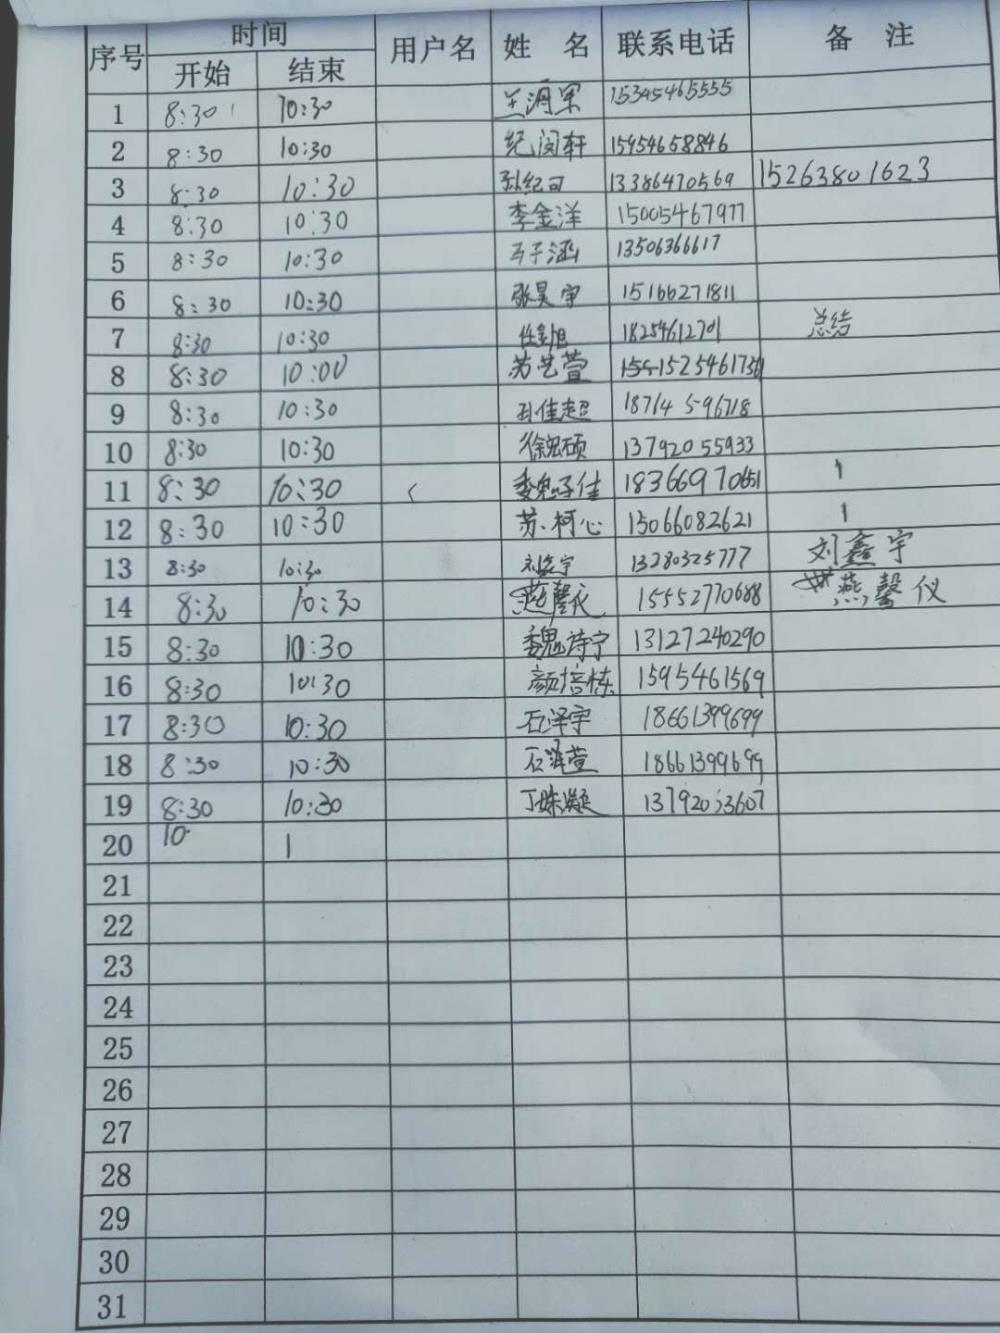 序号 时间 用户名 姓 名 联系电话 备 注
开始 结束
1 8:30 10:30 15345465555
2 8:30 10:30 纪闵轩 15954658846
3 8:30 10:30 孙纪可 13386470569 15263801623
4 8:30 10:30 李金洋 15005467977
5 8:30 10:30 马子涵 13506366617
6 8:30 10:30 张昊宇 15166271811
7 8:30 10:30 18254612701 总结
8 8:30 10:00 苏艺萱
9 8:30 10:30 孙佳超 18714596718
10 8:30 10:30 徐宏硕 13792055933
11 8:30 10:30 魏子佳 18366970651 1
12 8:30 10:30 苏柯心 15066082621 1
13 8:30 10:30 刘鑫宇 13280325777 刘鑫宇
14 8:30 10:30 燕馨仪 15552770688 燕馨仪
15 8:30 10:30 魏诗宁 13127240290
16 8:30 10:30 颜培栋 15954461569
17 8:30 10:30 石泽宇 18661399699
18 8:30 10:30 石泽萱 18661399699
19 8:30 10:30 丁姝凝 13792033607
20 10 1
21
22
23
24
25
26
27
28
29
30
31